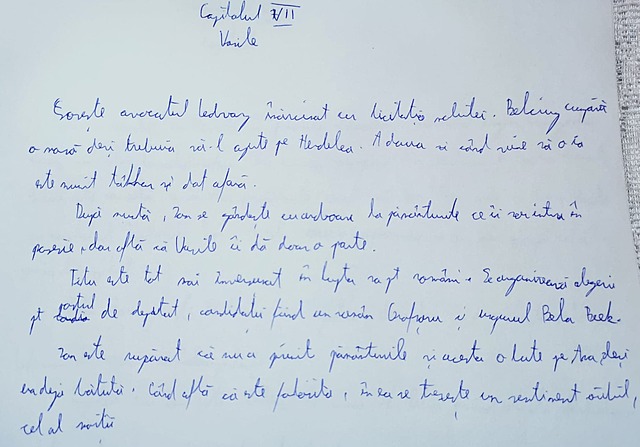 Capitolul VII
Vasile
Sosește avocatul Lendvay însărcinat cu licitația mobilei. Belciug cumpără
o masă deși trebuia să-l ajute pe Herdelea. A doua zi când vine să o ia
este numit tâlhar și dat afară.
După nuntă, Ion se gândește cu ardoare la pământurile ce îi vor intra în
posesie, dar află că Vasile îi dă doar o parte.
Titu este tot mai înverșunat în lupta sa pt români. Se organizează alegeri
pt postul de deputat, candidații fiind un român Grofșoru și ungurul Bela Beck.
Ion este supărat că nu a primit pământurile și acesta o bate pe Ana deși
era deja bătută. Când află că este folosită, în ea se trezește un sentiment sinistru,
cel al morții